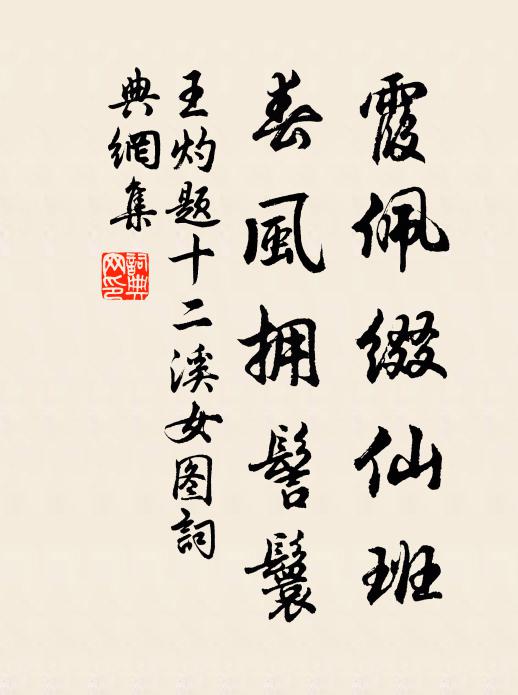 霞佩缀仙班
春風拥髻鬟
王灼题十二溪女图詞
典網集
詞典网印